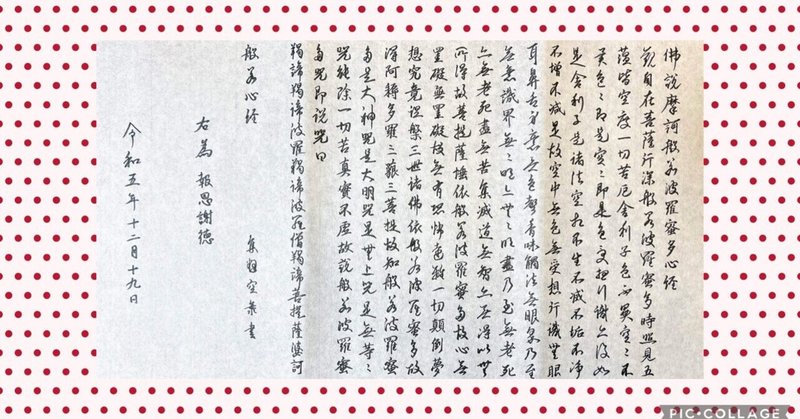 佛説摩訶般若波羅蜜多心経
観自在菩薩行深般若波羅蜜多時照見五
蘊皆空度一切苦厄舎利子色不異空々不
異色々即是空々即是色受想行識亦復如
是舎利子是諸法空相不生不滅不垢不浄
不増不減是故空中無色無受想行識無眼
耳鼻舌身意無色聲香味觸法無眼界乃至
無意識界無々明亦無々明盡乃至無老死
亦無老死盡無苦集滅道無智亦無得以無
所得故菩提薩埵依般若波羅蜜多故心無
罣礙無罣礙故無有恐怖遠離一切顛倒夢
想究竟涅槃三世諸佛依般若波羅蜜多故
得阿耨多羅三藐三菩提故知般若波羅蜜
多是大神呪是大明呪是無上呪是無等々
呪能除一切苦真實不虚故説般若波羅蜜
多呪即説呪曰
羯諦羯諦波羅羯諦波羅僧羯諦菩提薩婆訶
般若心経
右為 報恩謝徳
令和五年十二月十九日
PIC•COLLAGE